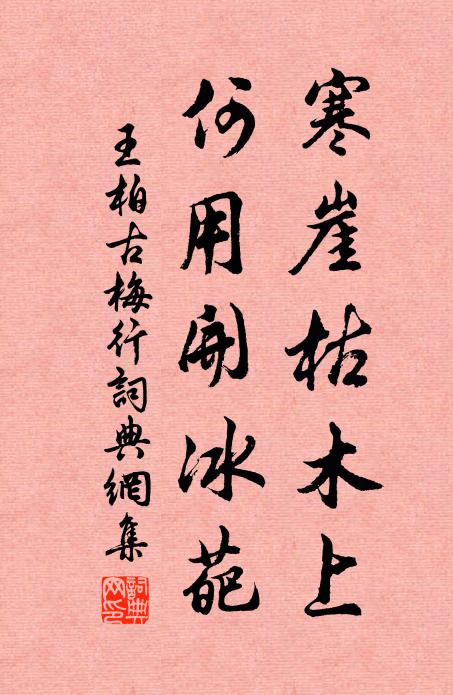 寒崖枯木上
何用開冰葩
王柏古梅行詞典網集
詞典網印